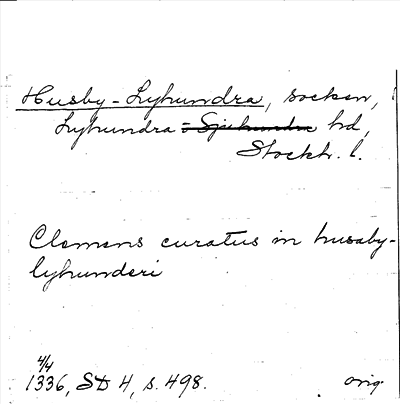 Husby-Lyhundra, socken,
Lyhundra hd,
Stockh. l.
Clemens curatus in husaby-
lyhunderi
4/4
1336, SD 4, s. 498.
orig.